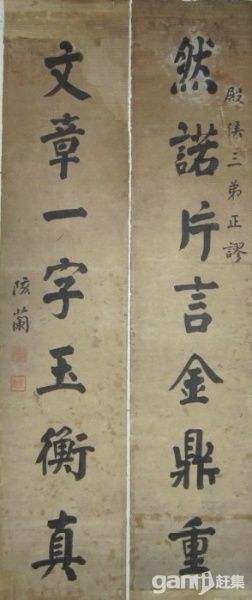 殿侯三弟正謬
然諾片言金鼎重
文章一字玉衡真
陔蘭
ganji 赶集